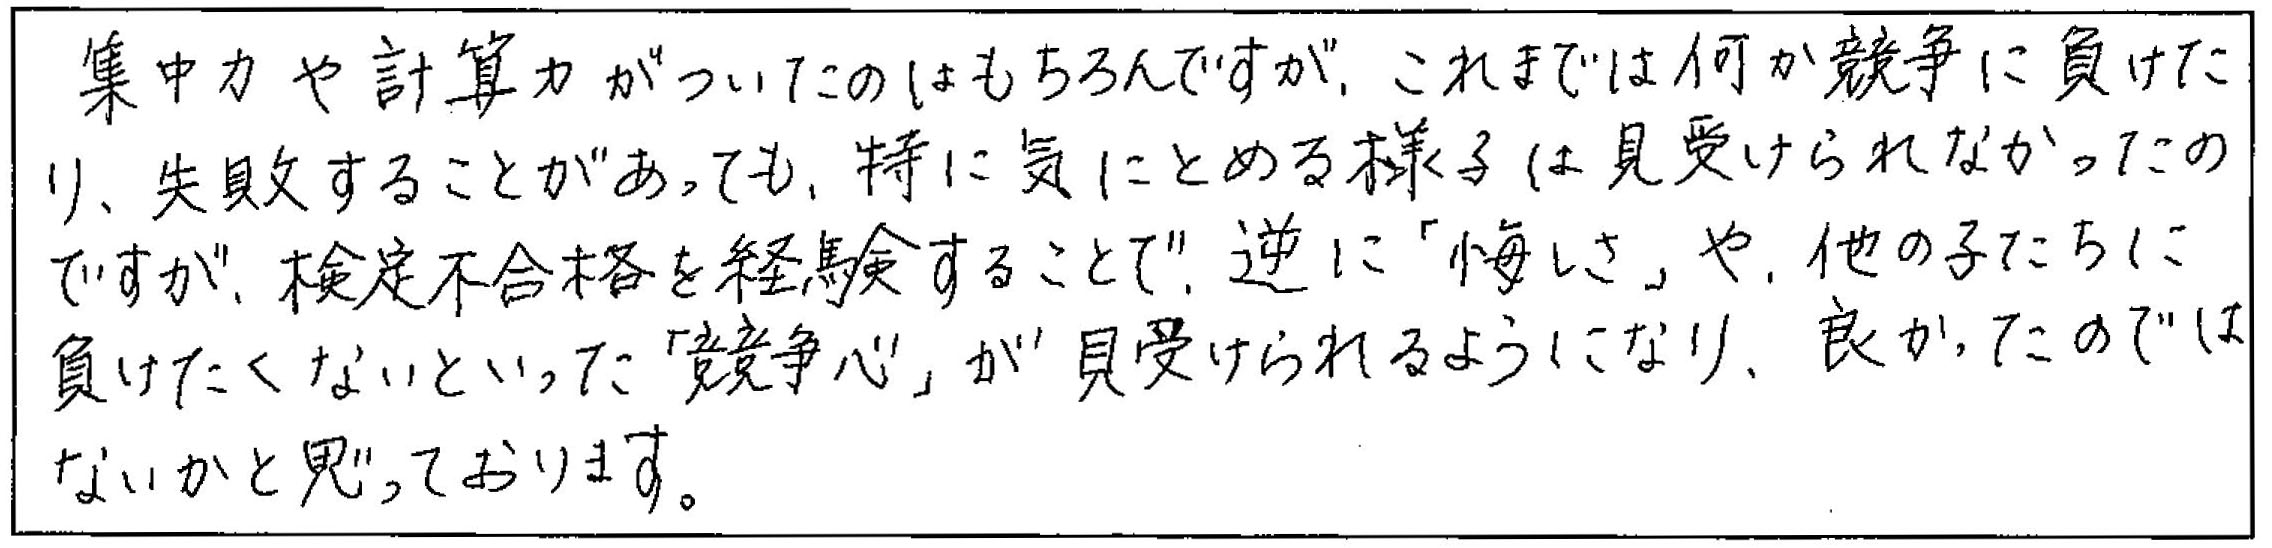 集中力や計算力がついたのはもちろんですが、これまでは何か競争に負けた
り、失敗することがあっても、特に気にとめる様子は見受けられなかったの
ですが、検定不合格を経験することで、逆に「悔しさ」や、他の子たちに
負けたくないといった「競争心」が見受けられるようになり、良かったのでは
ないかと思っております。